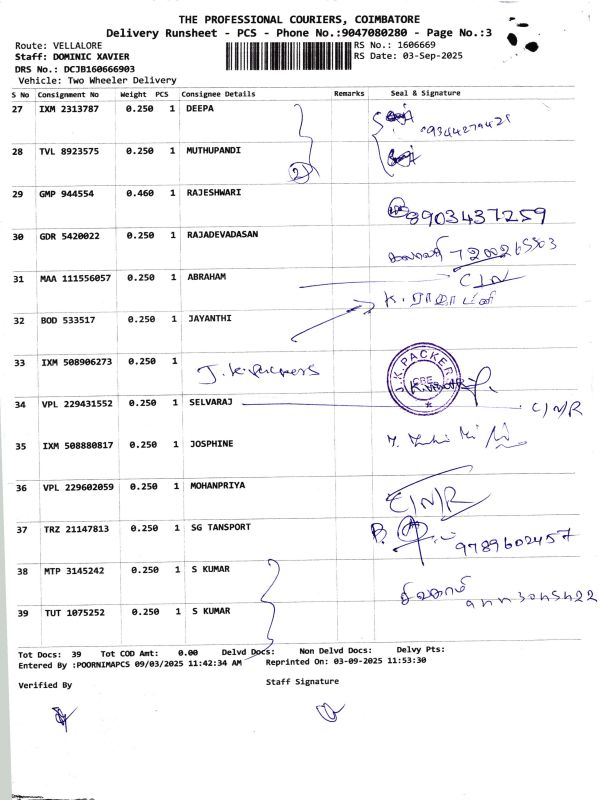 THE PROFESSIONAL COURIERS, COIMBATORE
Delivery Runsheet - PCS - Phone No.:9047080280 - Page No.:3
Route: VELLALORE
RS No.: 1606669
Staff: DOMINIC XAVIER
RS Date: 03-Sep-2025
DRS No.: DCJB160666903
Vehicle: Two Wheeler Delivery
S No Consignment No Weight PCS Consignee Details Remarks Seal & Signature
27 IXM 2313787 0.250 1 DEEPA
28 TVL 8923575 0.250 1 MUTHUPANDI
2
29 GMP 944554 0.460 1 RAJESHWARI
8903437259
30 GDR 5420022 0.250 1 RAJADEVADASAN
31 MAA 111556057 0.250 1 ABRAHAM C/N
32 BOD 533517 0.250 1 JAYANTHI
33 IXM 508906273 0.250 1 J.K. Packers
J.K.PACKER
CBE
34 VPL 229431552 0.250 1 SELVARAJ C/N/R
35 IXM 508880817 0.250 1 JOSPHINE
36 VPL 229602059 0.250 1 MOHANPRIYA C/N/R
37 TRZ 21147813 0.250 1 SG TANSPORT
9789602457
38 MTP 3145242 0.250 1 S KUMAR
39 TUT 1075252 0.250 1 S KUMAR
Tot Docs: 39 Tot COD Amt: 0.00 Delvd Docs: Non Delvd Docs: Delvy Pts:
Entered By :POORNIMAPCS 09/03/2025 11:42:34 AM Reprinted On: 03-09-2025 11:53:30
Verified By Staff Signature